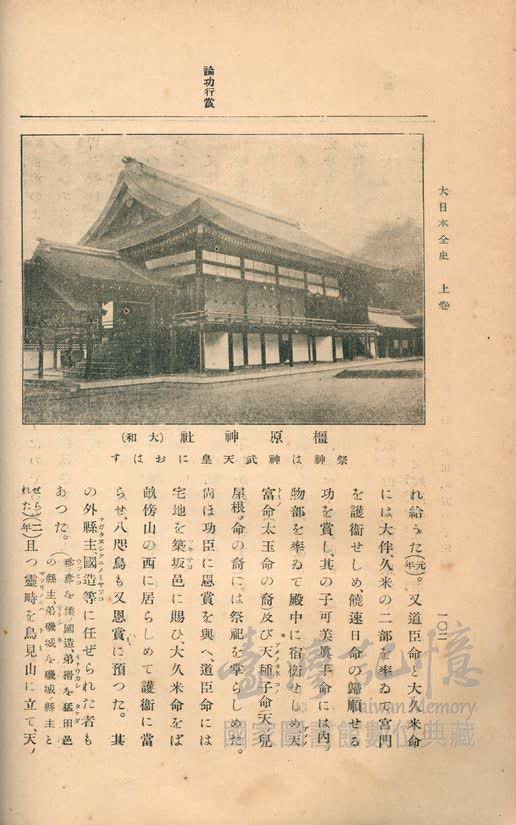 大日本全史　上卷
一〇二
論功行賞
橿原神社（大和）
祭神は神武天皇におはす
れ給うた（元年）。又道臣命と大久米命
には大伴久米の二部を率ゐて宮門
を護衞せしめ饒速日命の歸順せる
功を賞し、其の子可美眞手命には内つ
物部を率ゐて殿中に宿衞せしめ、天
富命（太玉命の裔）及び天種子命（天兒
屋根ノ命の裔）には祭祀を掌らしめた。
尚ほ功臣に恩賞を與へ、道臣命には
宅地を築坂邑に賜ひ、大久米命をば
畝傍山の西に居らしめて護衞に當
らせ、八咫烏も又恩賞に預つた。其
の外縣主國造等に任ぜられた者も
あつた。（珍彦を倭國造、弟猾を猛田邑の縣主、弟磯城を磯城縣主と
せられた）（二年）且つ靈畤を鳥見山に立て、天ノ
臺灣記憶
Taiwan Memory
國家圖書館數位典藏